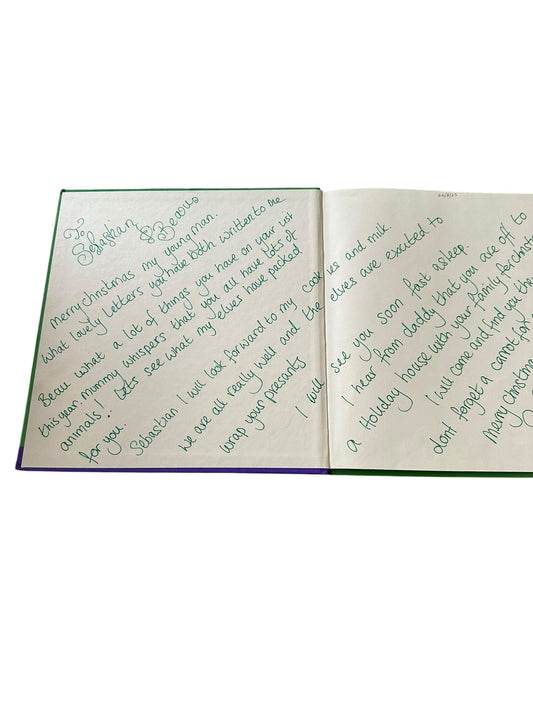 26/8/25
To
Sebastian & Beau
Merry Christmas my young man.
What lovely letters you have both written to me
Beau what a lot of things you have on your list
this year. Mummy whispers that you all have lots of
animals! Lets see what my elves have packed
for you.
Sebastian I will look forward to my cookies and milk.
We are all really well and the elves are excited to
wrap your presants
I will see you soon fast asleep.
I hear from daddy that you are off to
a Holiday house with your family for Christm
I will come and find you the
dont forget a carrot for
Merry Christma